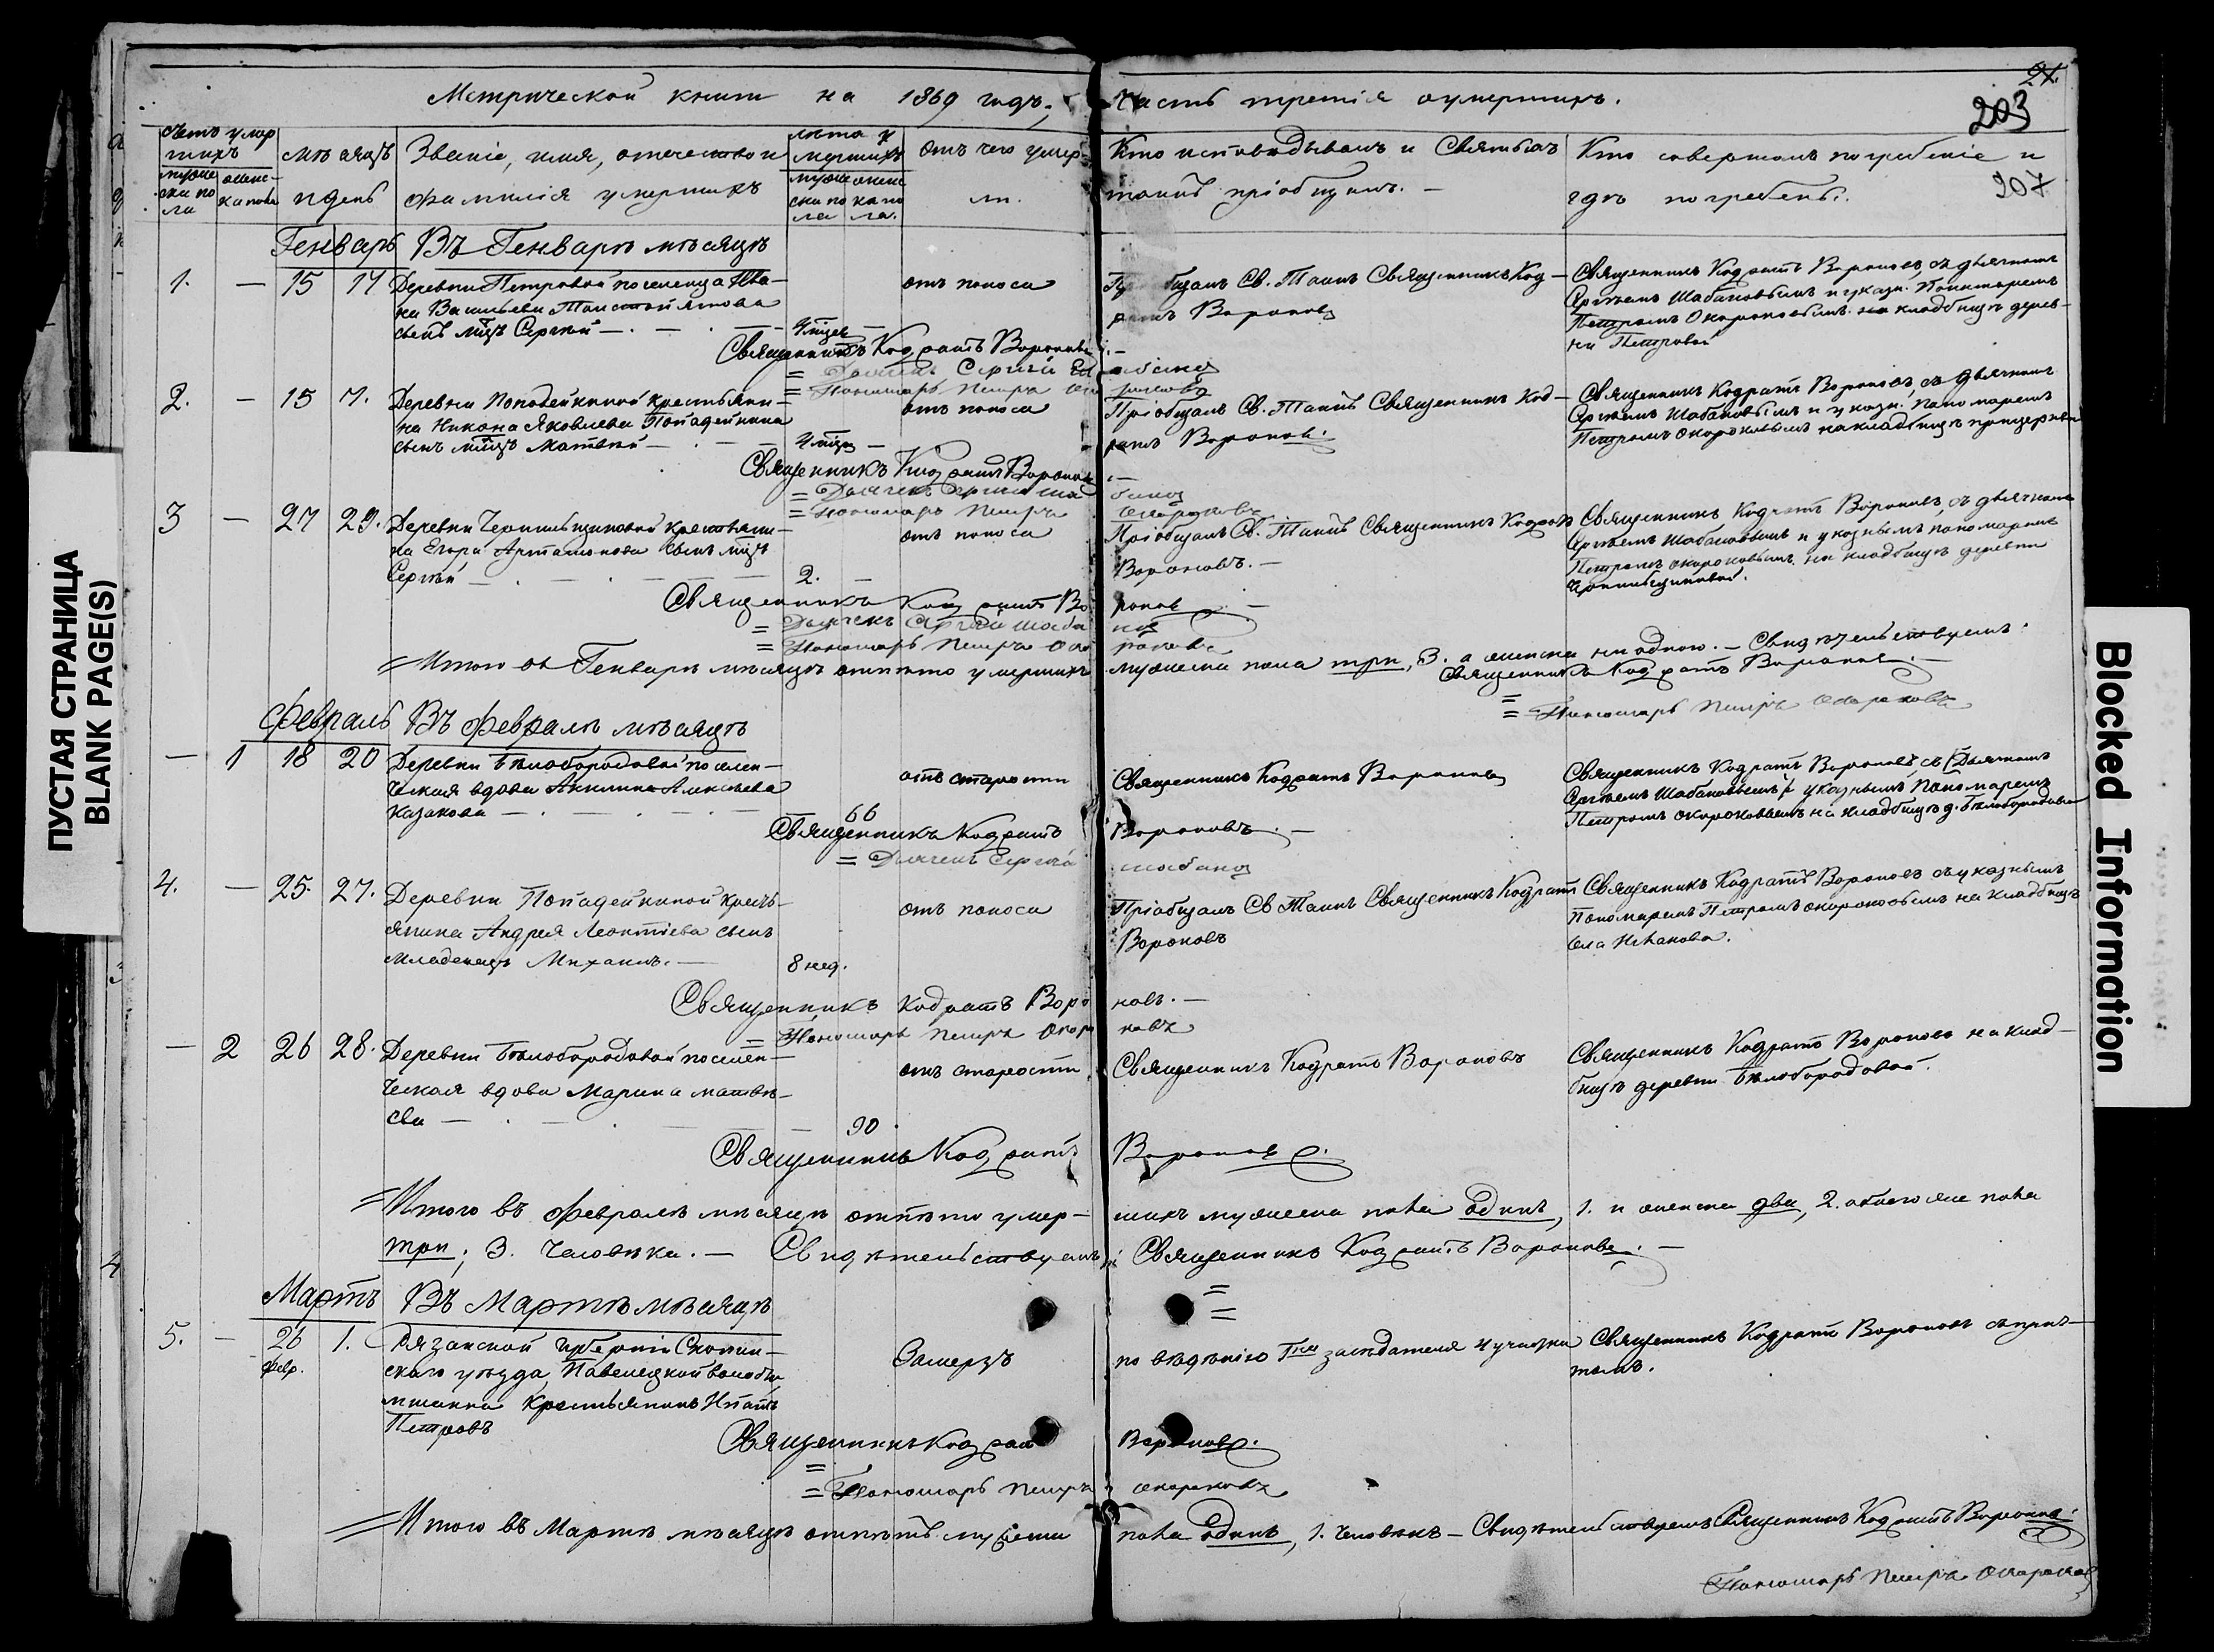 ПУСТАЯ СТРАНИЦА
BLANK PAGE(S)
Blocked Information
Метрической книги на 1869 годъ, Часть третія о умершихъ.
21.
203
207
Счетъ умершихъ
мужеска пола
женска пола
мѣсяцъ и день
Званіе, имя, отечество и фамилія умершихъ
лѣта умершихъ
мужеска пола
женска пола.
отъ чего умерли.
Кто исповѣдывалъ и Святыхъ таинъ пріобщалъ. —
Кто совершалъ погребеніе и гдѣ погребены.
Генварь Въ Генварѣ мѣсяцѣ
1. — 15 17
Деревни Петровой поселенца Ива-
на Васильева
сынъ мцъ Сергѣй —
отъ поноса
Св. Таинъ Священникъ Код-
ратъ Вороновъ
Священникъ Кодратъ Вороновъ, съ дьячкомъ
Сергѣемъ Шабановымъ и указн. Пономаремъ
Петромъ Окороковымъ на кладбищѣ дерев-
ни Петровой
Священникъ Кодратъ Вороновъ
= Дьячекъ Сергѣй Шабановъ
= Пономарь Петръ Окороковъ
2. — 15 17.
Деревни Попадейкиной крестьяни-
на Никона Яковлева Попадейкина
сынъ мцъ Матвѣй —
отъ поноса
Пріобщалъ Св. Таинъ Священникъ Код-
ратъ Вороновъ.
Священникъ Кодратъ Вороновъ, съ дьячкомъ
Сергѣемъ Шабановымъ и указн. пономаремъ
Петромъ Окороковымъ на кладбищѣ при церкви
Священникъ Кодратъ Вороновъ
= Дьячекъ Сергѣй Шабановъ
= Пономарь Петръ Окороковъ
3 — 27 29.
Деревни крестьяни-
на Егора Артамонова сынъ мцъ
Сергѣй —
2. —
отъ поноса
Пріобщалъ Св. Таинъ Священникъ Кодратъ
Вороновъ. —
Священникъ Кодратъ Вороновъ, съ дьячкомъ
Сергѣемъ Шабановымъ и указнымъ пономаремъ
Петромъ Окороковымъ на кладбищѣ деревни
Священникъ Кодратъ Вороновъ —
= Дьячекъ Сергѣй Шабановъ
= Пономарь Петръ Окороковъ
= Итого въ Генварѣ мѣсяцѣ отпѣто умершихъ мужеска пола три, 3. а женска ни одного. — Свидѣтельствуемъ:
Священникъ Кодратъ Вороновъ. —
=
= Пономарь Петръ Окороковъ
Февраль Въ Февралѣ мѣсяцѣ
— 1 18 20
Деревни Бѣлобородовой поселен-
ческая вдова Акилина Алексѣева
Казакова —
66
отъ старости
Священникъ Кодратъ Вороновъ
Священникъ Кодратъ Вороновъ, съ Дьячкомъ
Сергѣемъ Шабановымъ и указнымъ Пономаремъ
Петромъ Окороковымъ на кладбищѣ д. Бѣлобородовой
Священникъ Кодратъ Вороновъ. —
= Дьячекъ Сергѣй Шабановъ
4. — 25. 27.
Деревни Попадейкиной кресть-
янина Андрея Леонтіева сынъ
младенецъ Михаилъ. —
8 нед.
отъ поноса
Пріобщалъ Св Таинъ Священникъ Кодратъ
Вороновъ
Священникъ Кодратъ Вороновъ съ указнымъ
Пономаремъ Петромъ Окороковымъ на кладбищѣ
села
Священникъ Кодратъ Вороновъ. —
= Пономарь Петръ Окороковъ
— 2 26 28.
Деревни Бѣлобородовой поселен-
ческая вдова Марина Матвѣ-
ева —
90.
отъ старости
Священникъ Кодратъ Вороновъ
Священникъ Кодратъ Вороновъ на клад-
бищѣ деревни Бѣлобородовой.
Священникъ Кодратъ Вороновъ.
= Итого въ Февралѣ мѣсяцѣ отпѣто умер- шихъ мужеска пола одинъ, 1. и женска два, 2. обоего же пола
три; 3. человѣка. — Свидѣтельствуемъ: Священникъ Кодратъ Вороновъ. —
=
=
Мартъ Въ Мартѣ мѣсяцѣ
5. — 26 февр. 1.
Рязанской Губерніи Скопин-
скаго уѣзда, Павелецкой волости,
крестьянинъ Ипатъ
Петровъ
Замерзъ
по вѣдѣнію Гна засѣдателя 4 участка
Священникъ Кодратъ Вороновъ съ прич-
томъ.
Священникъ Кодратъ Вороновъ.
=
= Пономарь Петръ Окороковъ
= Итого въ Мартѣ мѣсяцѣ отпѣтъ мужеска пола одинъ, 1. человѣкъ — Свидѣтельствуемъ Священникъ Кодратъ Вороновъ
Пономарь Петръ Окороковъ